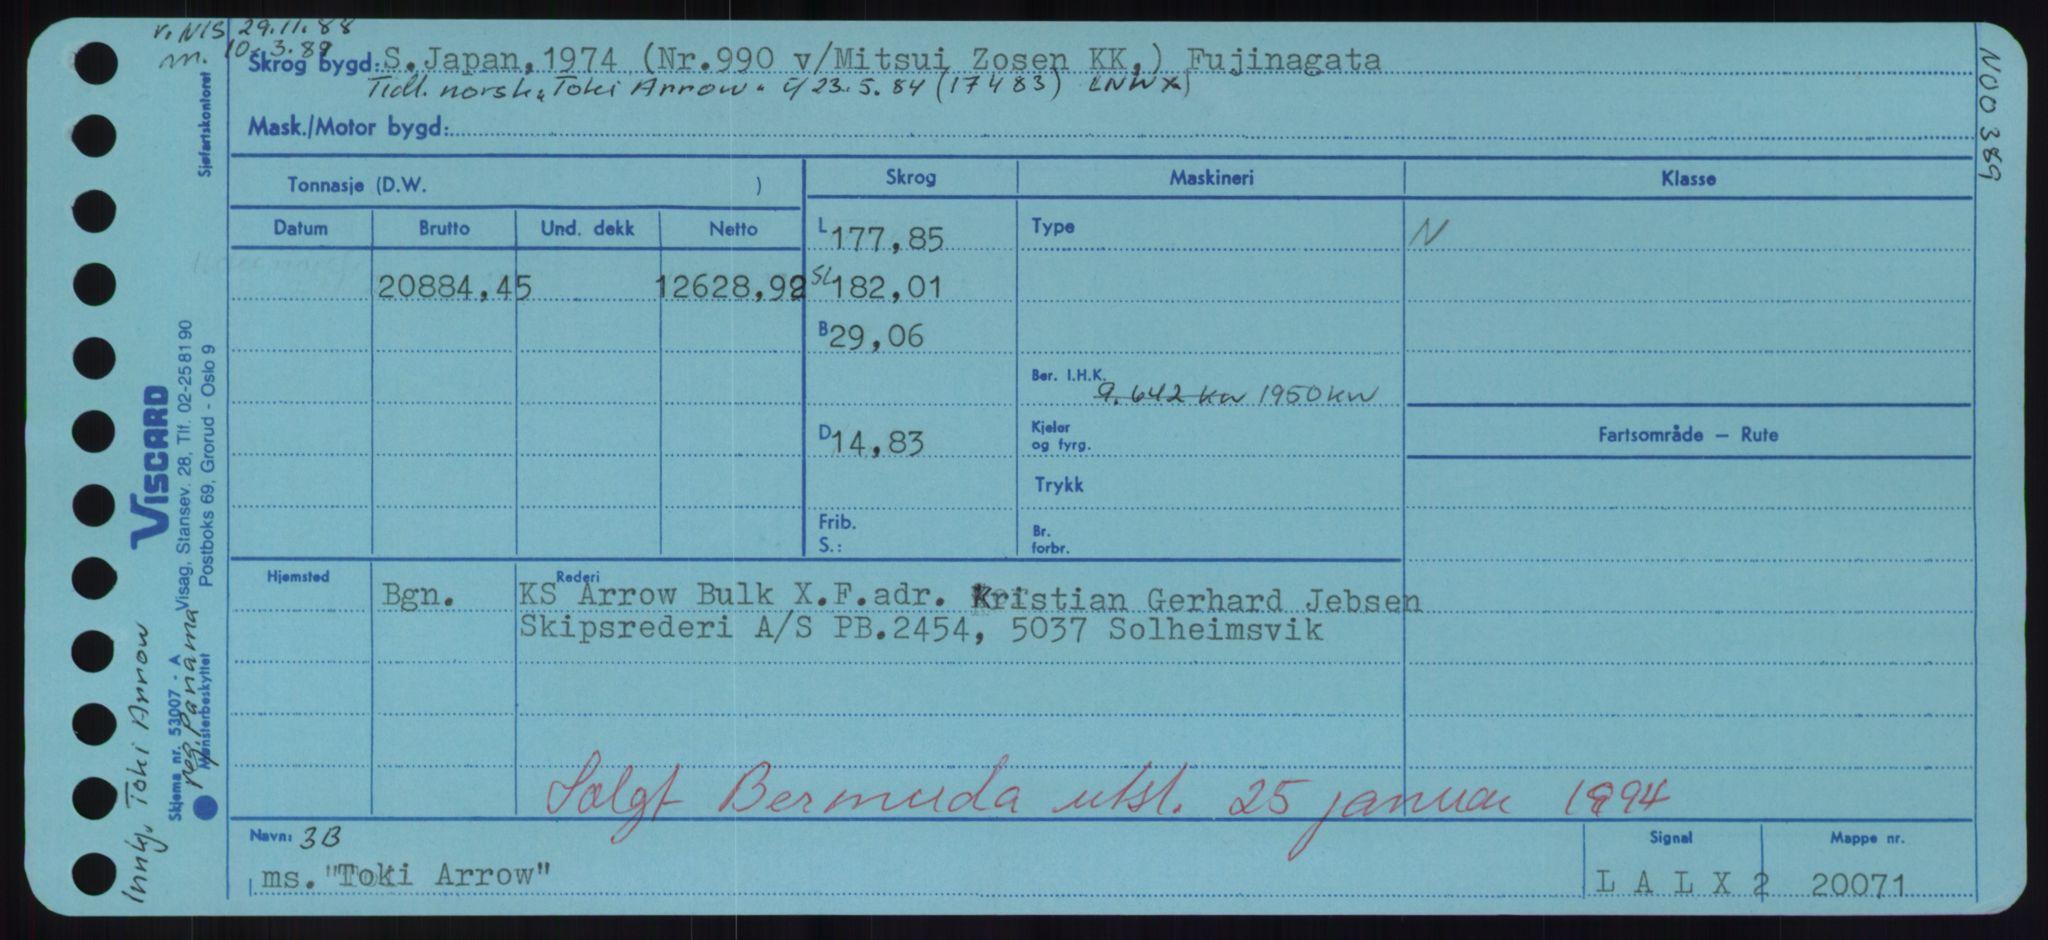 v. NIS 29.11.88
m. 10.3.89
Skrog bygd: S. Japan, 1974 (Nr.990 v/Mitsui Zosen KK,) Fujinagata
Tidl. norsk "Toki Arrow" 23.5.84 (17483) LNWX
Mask./Motor bygd:
Sjøfartskontoret
NOO 389
Tonnasje (D.W. )
Skrog
Maskineri
Klasse
Datum Brutto Und. dekk Netto
L 177,85
Type
N
20884,45 12628,92
SL 182,01
B 29,06
Ber. I.H.K.
9.642 kw 1950 kw
D 14,83
Kjeler
og fyrg.
Fartsområde – Rute
Trykk
Frib.
S.:
Br.
forbr.
Hjemsted
Rederi
Bgn. KS Arrow Bulk X.F.adr. Kristian Gerhard Jebsen
Skipsrederi A/S PB.2454, 5037 Solheimsvik
Solgt Bermuda utsl. 25 januar 1994
Navn: 3B
ms. "Toki Arrow"
Signal
L A L X 2
Mappe nr.
20071
VISCARD
Visag, Stansev. 28, Tlf. 02-25 81 90
Postboks 69, Grorud - Oslo 9
Skjema nr. 53007 - A
Mønsterbeskyttet
Toki Arrow
reg. Panama